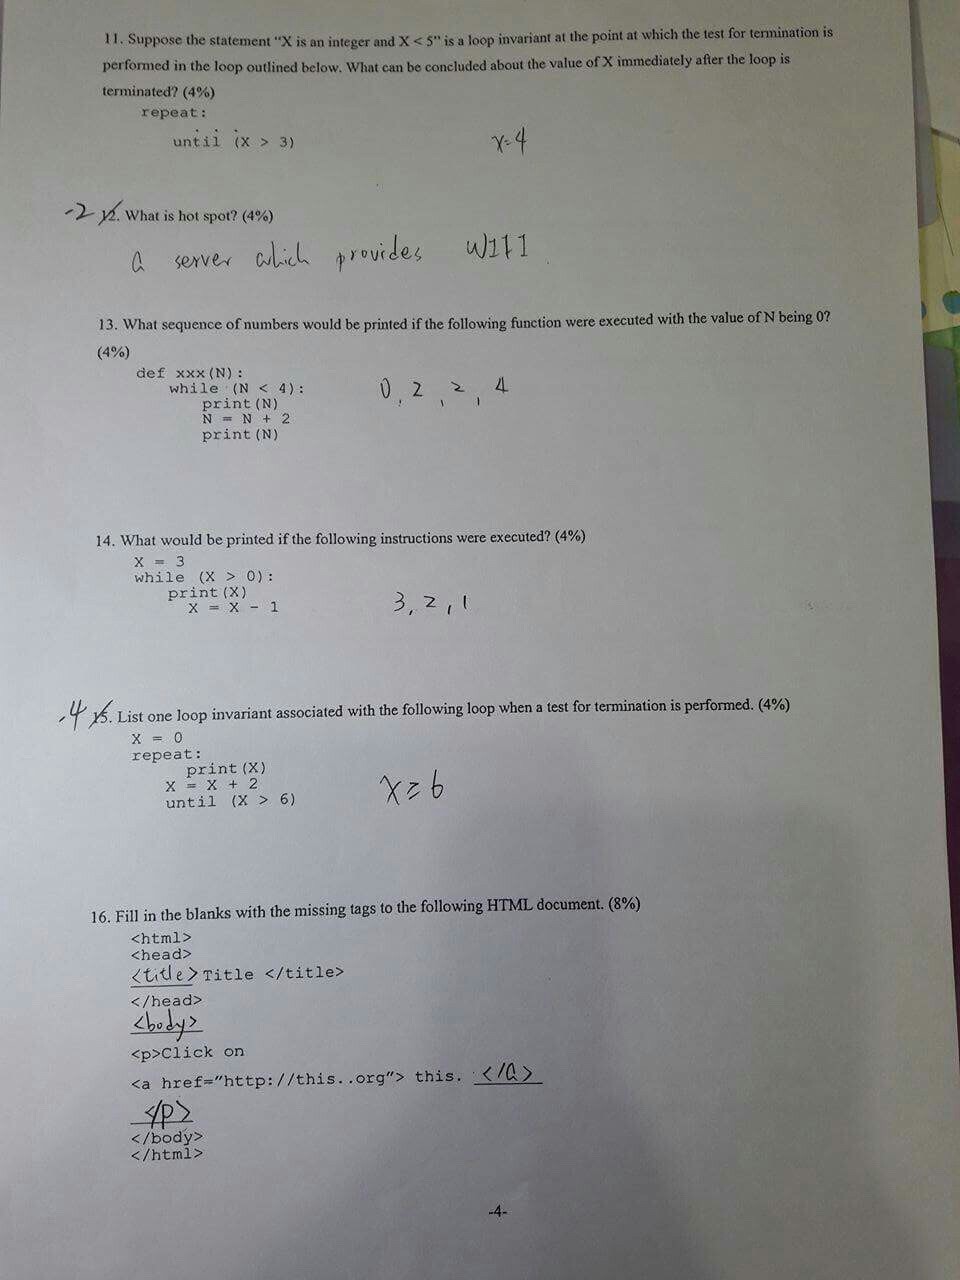 11. Suppose the statement "X is an integer and X < 5" is a loop invariant at the point at which the test for termination is
performed in the loop outlined below. What can be concluded about the value of X immediately after the loop is
terminated? (4%)
repeat:
. . .
until (X > 3)
x=4
-2 12. What is hot spot? (4%)
a server which provides WIFI.
13. What sequence of numbers would be printed if the following function were executed with the value of N being 0?
(4%)
def xxx(N):
while (N < 4):
print(N)
N = N + 2
print(N)
0, 2, 2, 4
14. What would be printed if the following instructions were executed? (4%)
X = 3
while (X > 0):
print(X)
X = X - 1
3, 2, 1
-4 15. List one loop invariant associated with the following loop when a test for termination is performed. (4%)
X = 0
repeat:
print(X)
X = X + 2
until (X > 6)
16. Fill in the blanks with the missing tags to the following HTML document. (8%)
<html>
<head>
<title> Title </title>
</head>
<body>
<p>Click on
<a href="http://this..org"> this. </a>
</p>
</body>
</html>
-4-